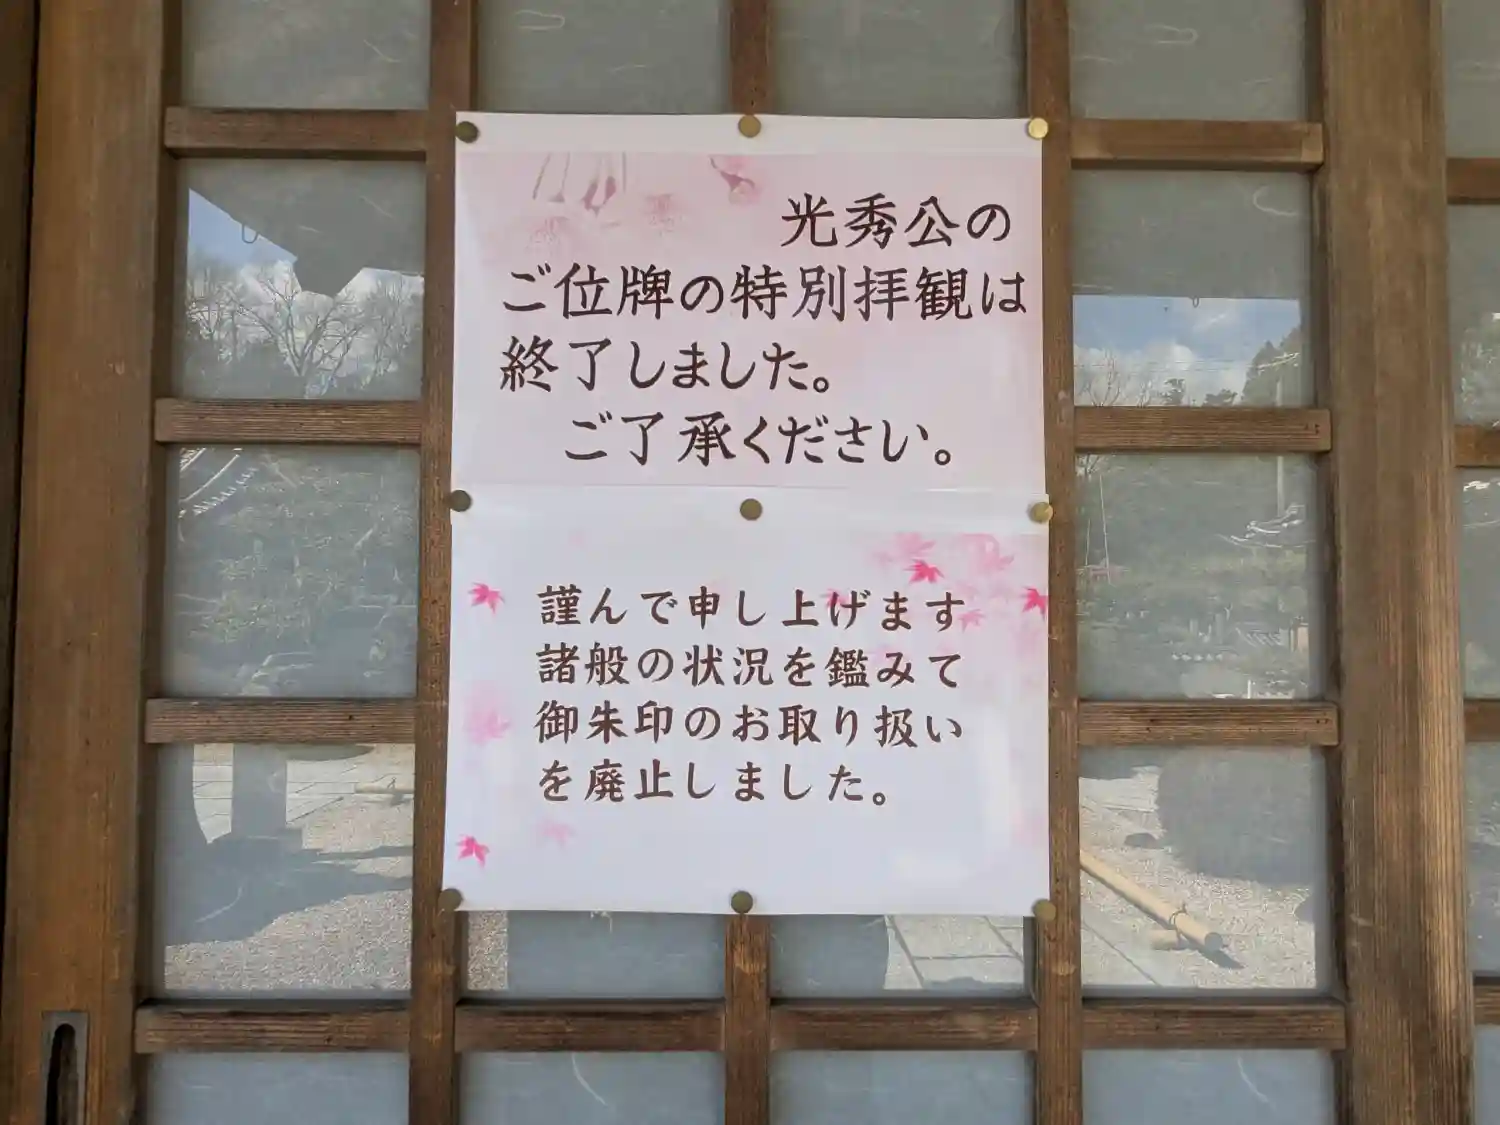 光秀公の
ご位牌の特別拝観は
終了しました。
ご了承ください。
謹んで申し上げます
諸般の状況を鑑みて
御朱印のお取り扱い
を廃止しました。